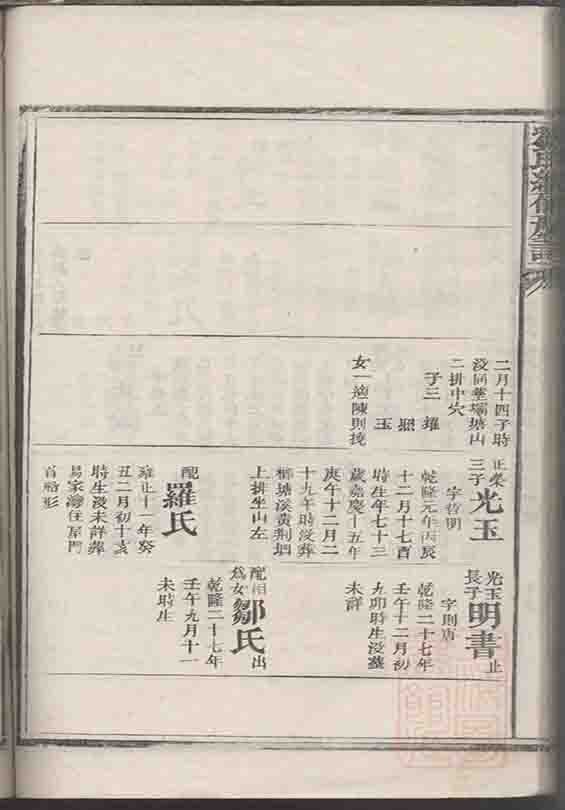 二月十四子時
沒同塟壩塘山
二排中穴
子三 耀
熙
玉
女一適陳則撓
正榮三子 光玉
字哲明
乾隆元年丙辰
十二月十七酉
時生年七十三
歲嘉慶十五年
庚午十二月二
十九午時沒葬
塘溪黃荆坰
上排坐山左
配 羅氏
雍正十一年癸
丑二月初十亥
時生沒未詳葬
易家灣住屋門
首形
光玉長子 明書 止
字則唐
乾隆二十七年
壬午十二月初
九卯時生沒葬
未詳
配相為女 鄒氏 出
乾隆二十七年
壬午九月十一
未時生